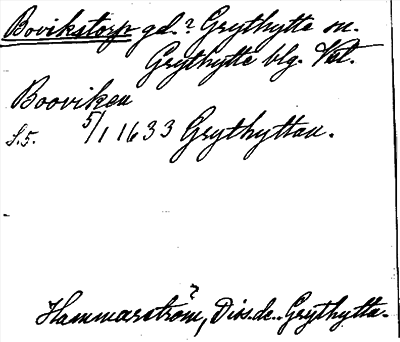 Bovikstorp gd.? Grythytte sn.
Grythytte blg. Vstl.
Booviken
S. 5. 5/1 1633 Grythyttan.
Hammarström, Div. de. Grythytta.